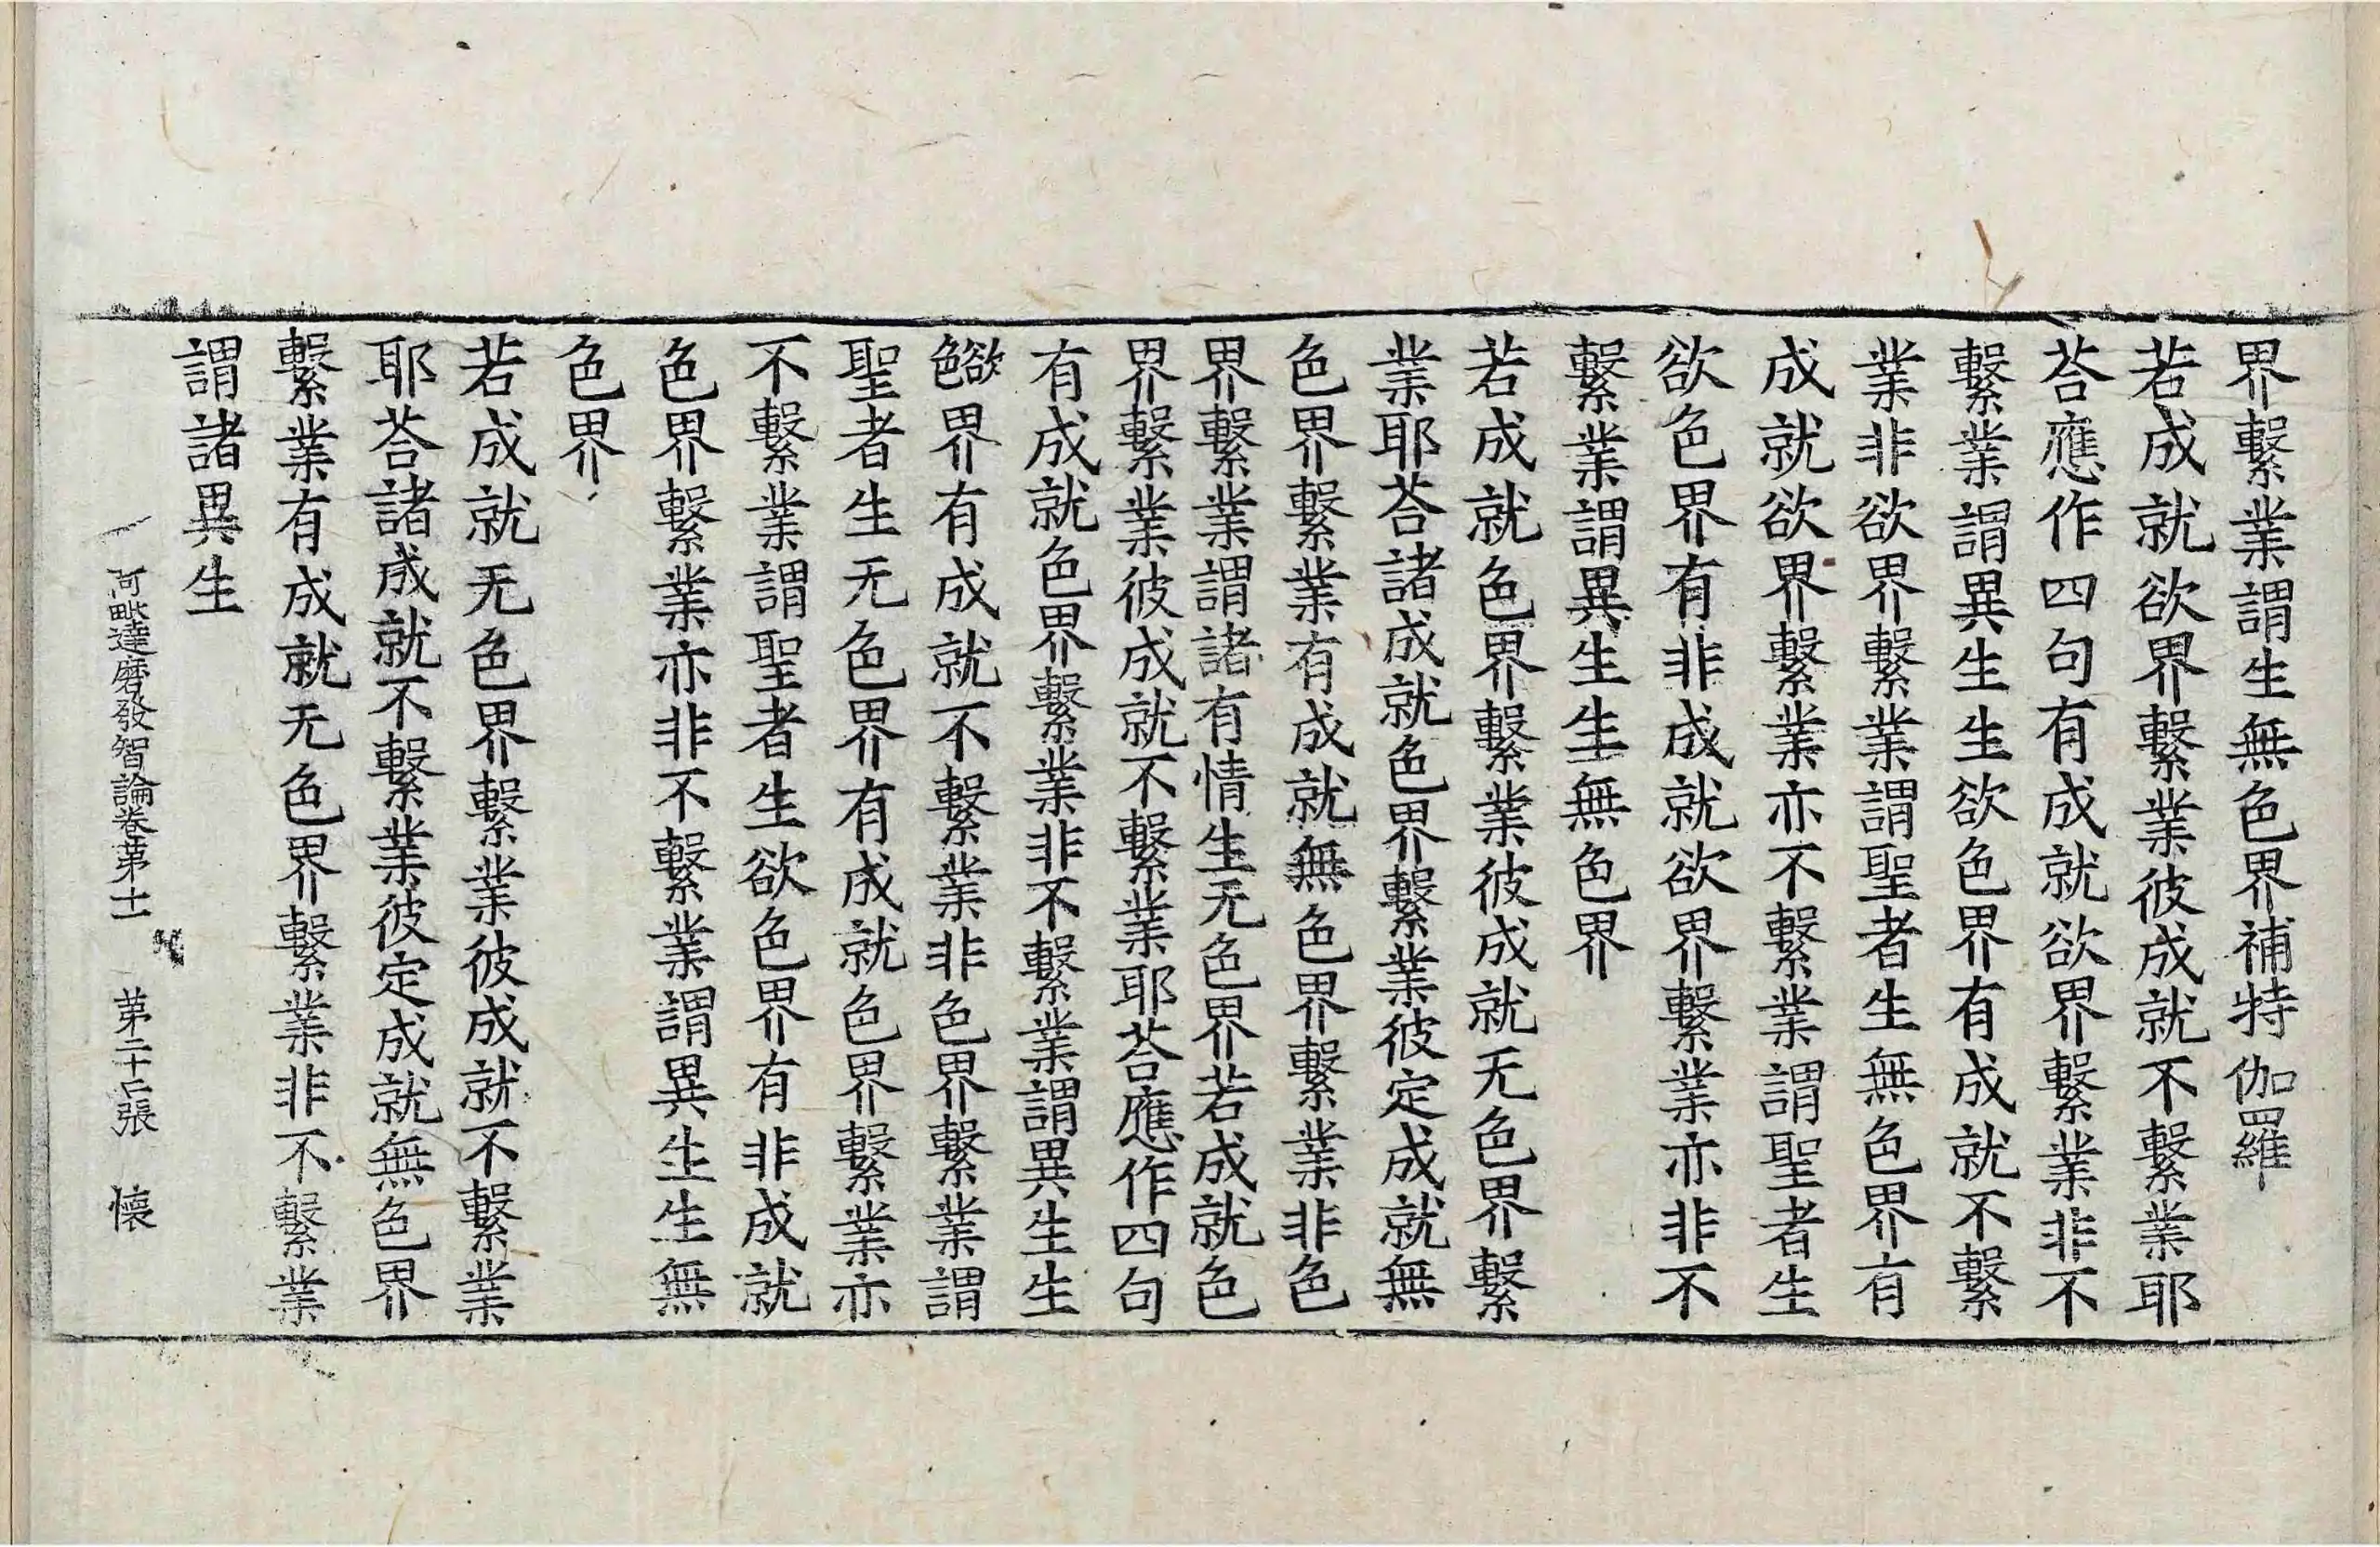 界繫業謂生無色界補特伽羅
若成就欲界繫業彼成就不繫業耶
荅應作四句有成就欲界繫業非不
繫業謂異生生欲色界有成就不繫
業非欲界繫業謂聖者生無色界有
成就欲界繫業亦不繫業謂聖者生
欲色界有非成就欲界繫業亦非不
繫業謂異生生無色界
若成就色界繫業彼成就无色界繫
業耶荅諸成就色界繫業彼定成就無
色界繫業有成就無色界繫業非色
界繫業謂諸有情生无色界若成就色
界繫業彼成就不繫業耶荅應作四句
有成就色界繫業非不繫業謂異生生
欲色界有成就不繫業非色界繫業謂
聖者生无色界有成就色界繫業亦
不繫業謂聖者生欲色界有非成就
色界繫業亦非不繫業謂異生生無
色界
若成就无色界繫業彼成就不繫業
耶荅諸成就不繫業彼定成就無色界
繫業有成就无色界繫業非不繫業
謂諸異生
阿毗達磨發智論卷第十一 第二十張 懷